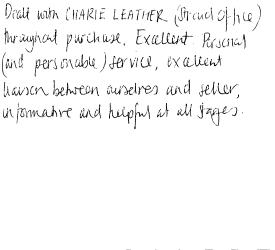 Dealt with CHARIE LEATHER (Stroud office)
throughout purchase. Excellent Personal
(and personable) service, excellent
liaison between ourselves and seller,
informative and helpful at all stages.